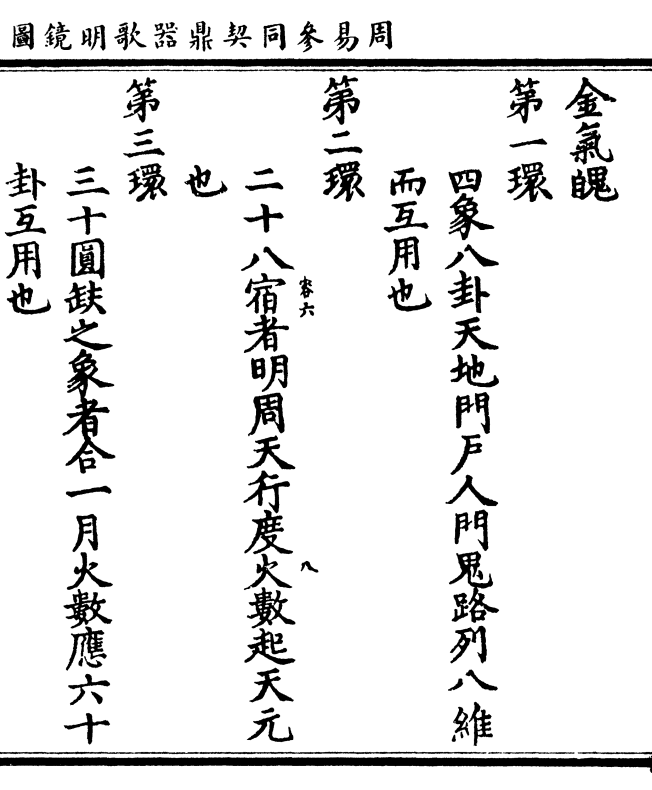 周易參同契鼎器歌明鏡圖
金氣魄
第一環
四象八卦天地門戶人門鬼路列八維
而互用也
第二環
二十八宿者明周天行度火數起天元
容六
八
也
第三環
三十圓缺之象者合一月火數應六十
卦互用也